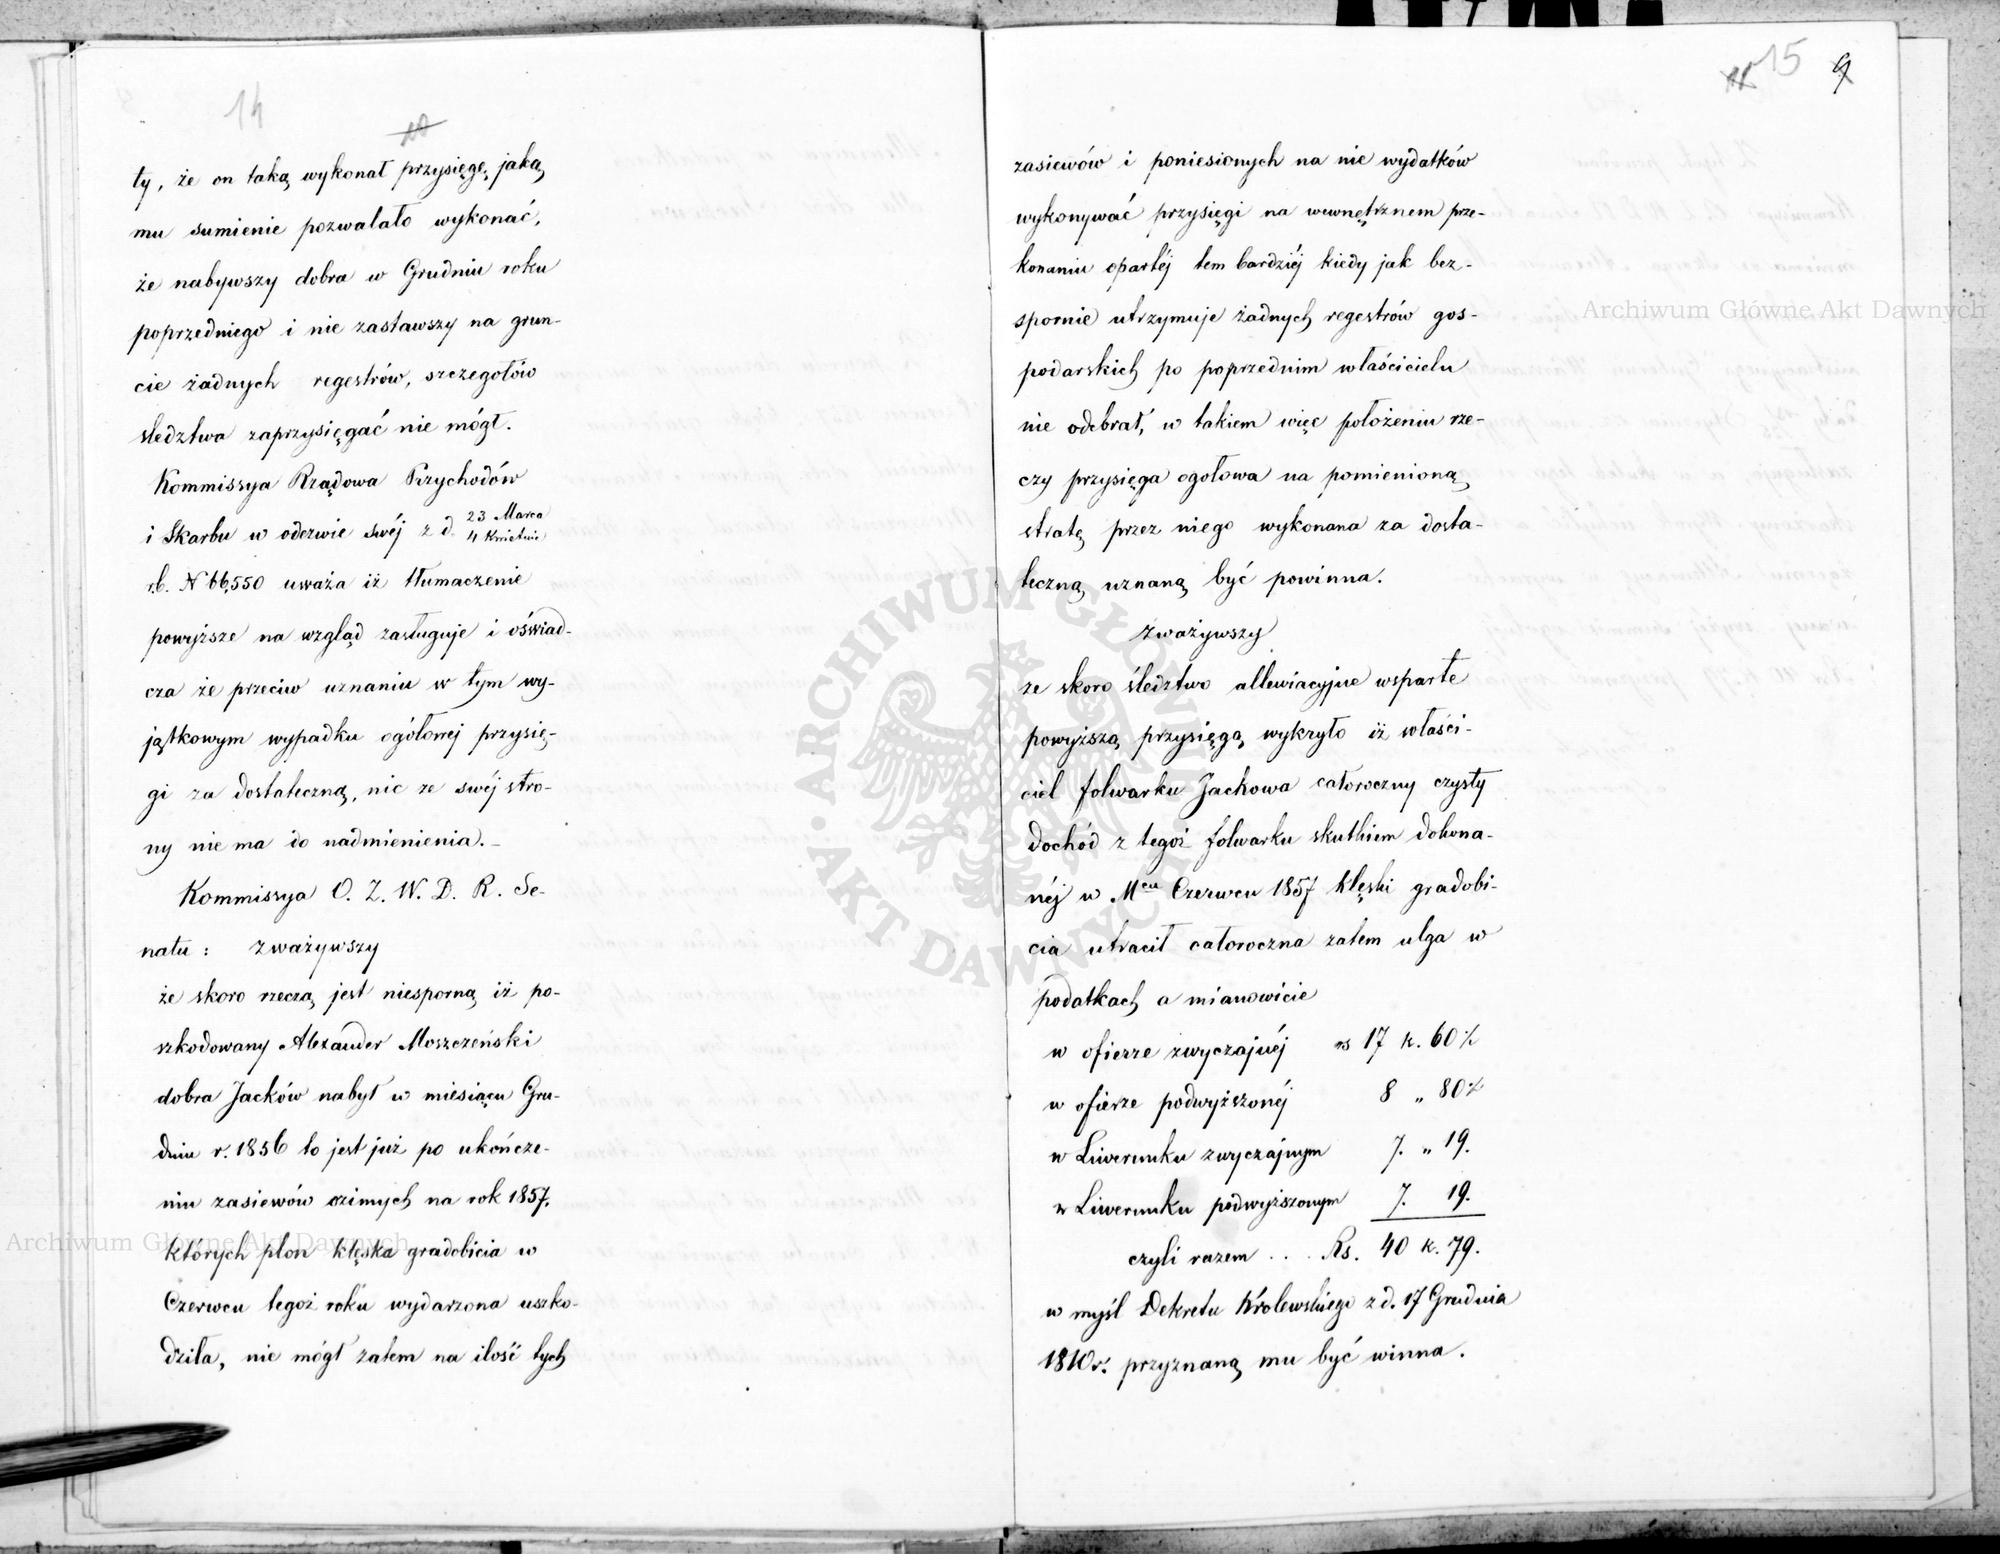 14
ty, że on taką wykonał przysięgę, jaką
mu sumienie pozwalało wykonać,
że nabywszy dobra w Grudniu roku
poprzedniego i nie zastawszy na grun-
cie żadnych regestrów, szczegołów
śledztwa zaprzysięgać nie mógł.
Kommissya Rządowa Przychodów
i Skarbu w odezwie swéj z d. 23 Marca
4 Kwietnia
r.b. N 66,550 uważa iż tłumaczenie
powyższe na wzgląd zasługuje i oświad-
cza że przeciw uznaniu w tym wy-
jątkowym wypadku ogółowej przysię-
gi za dostateczną, nic ze swéj stro-
ny nie ma do nadmienienia.
Kommissya O. Z. W. D. R. Se-
natu: zważywszy
że skoro rzeczą jest niesporną iż po-
szkodowany Alexander Moszczeński
dobra Jacków nabył w miesiącu Gru-
dniu r. 1856 to jest już po ukończe-
niu zasiewów ozimych na rok 1857.
których plon klęska gradobicia w
Czerwcu tegoż roku wydarzona uszko-
dziła, nie mógł zatem na ilość tych
15 9
zasiewów i poniesionych na nie wydatków
wykonywać przysięgi na wewnętrznem prze-
konaniu opartéj tem bardziéj kiedy jak bez-
spornie utrzymuje żadnych regestrów gos-
podarskich po poprzednim właścicielu
nie odebrał, w takiem więc położeniu rze-
czy przysięga ogołowa na pomienioną
stratę przez niego wykonana za dosta-
teczną uznaną być powinna.
zważywszy
ze skoro śledztwo allewiacyjne wsparte
powyższą przysięgą wykryło iż właści-
ciel folwarku Jackowa całoroczny czysty
dochód z tegoż folwarku skutkiem dokona-
néj w Mcu Czerwcu 1857 klęski gradobi-
cia utracił całoroczna zatem ulga w
podatkach a mianowicie
w ofierze zwyczajnéj rs 17 k. 60½
w ofierze podwyższonéj 8 „ 80½
w Liwerunku zwyczajnym 7. „ 19.
w Liwerunku podwyższonym 7. 19.
czyli razem ... Rs. 40 k. 79.
w myśl Dekretu Krolewskiego z d. 17 Grudnia
1810 r. przyznaną mu być winna.
Archiwum Główne Akt Dawnych
Archiwum Główne Akt Dawnych
ARCHIWUM GŁÓWNE
AKT DAWNYCH